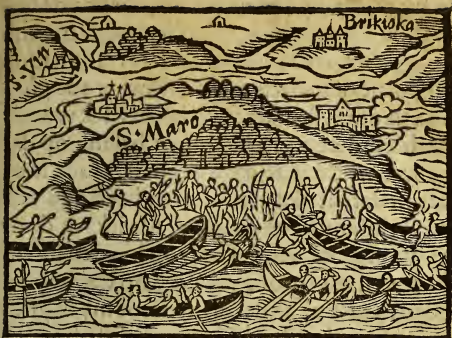 Brikiska
S. Vin
S. Maro